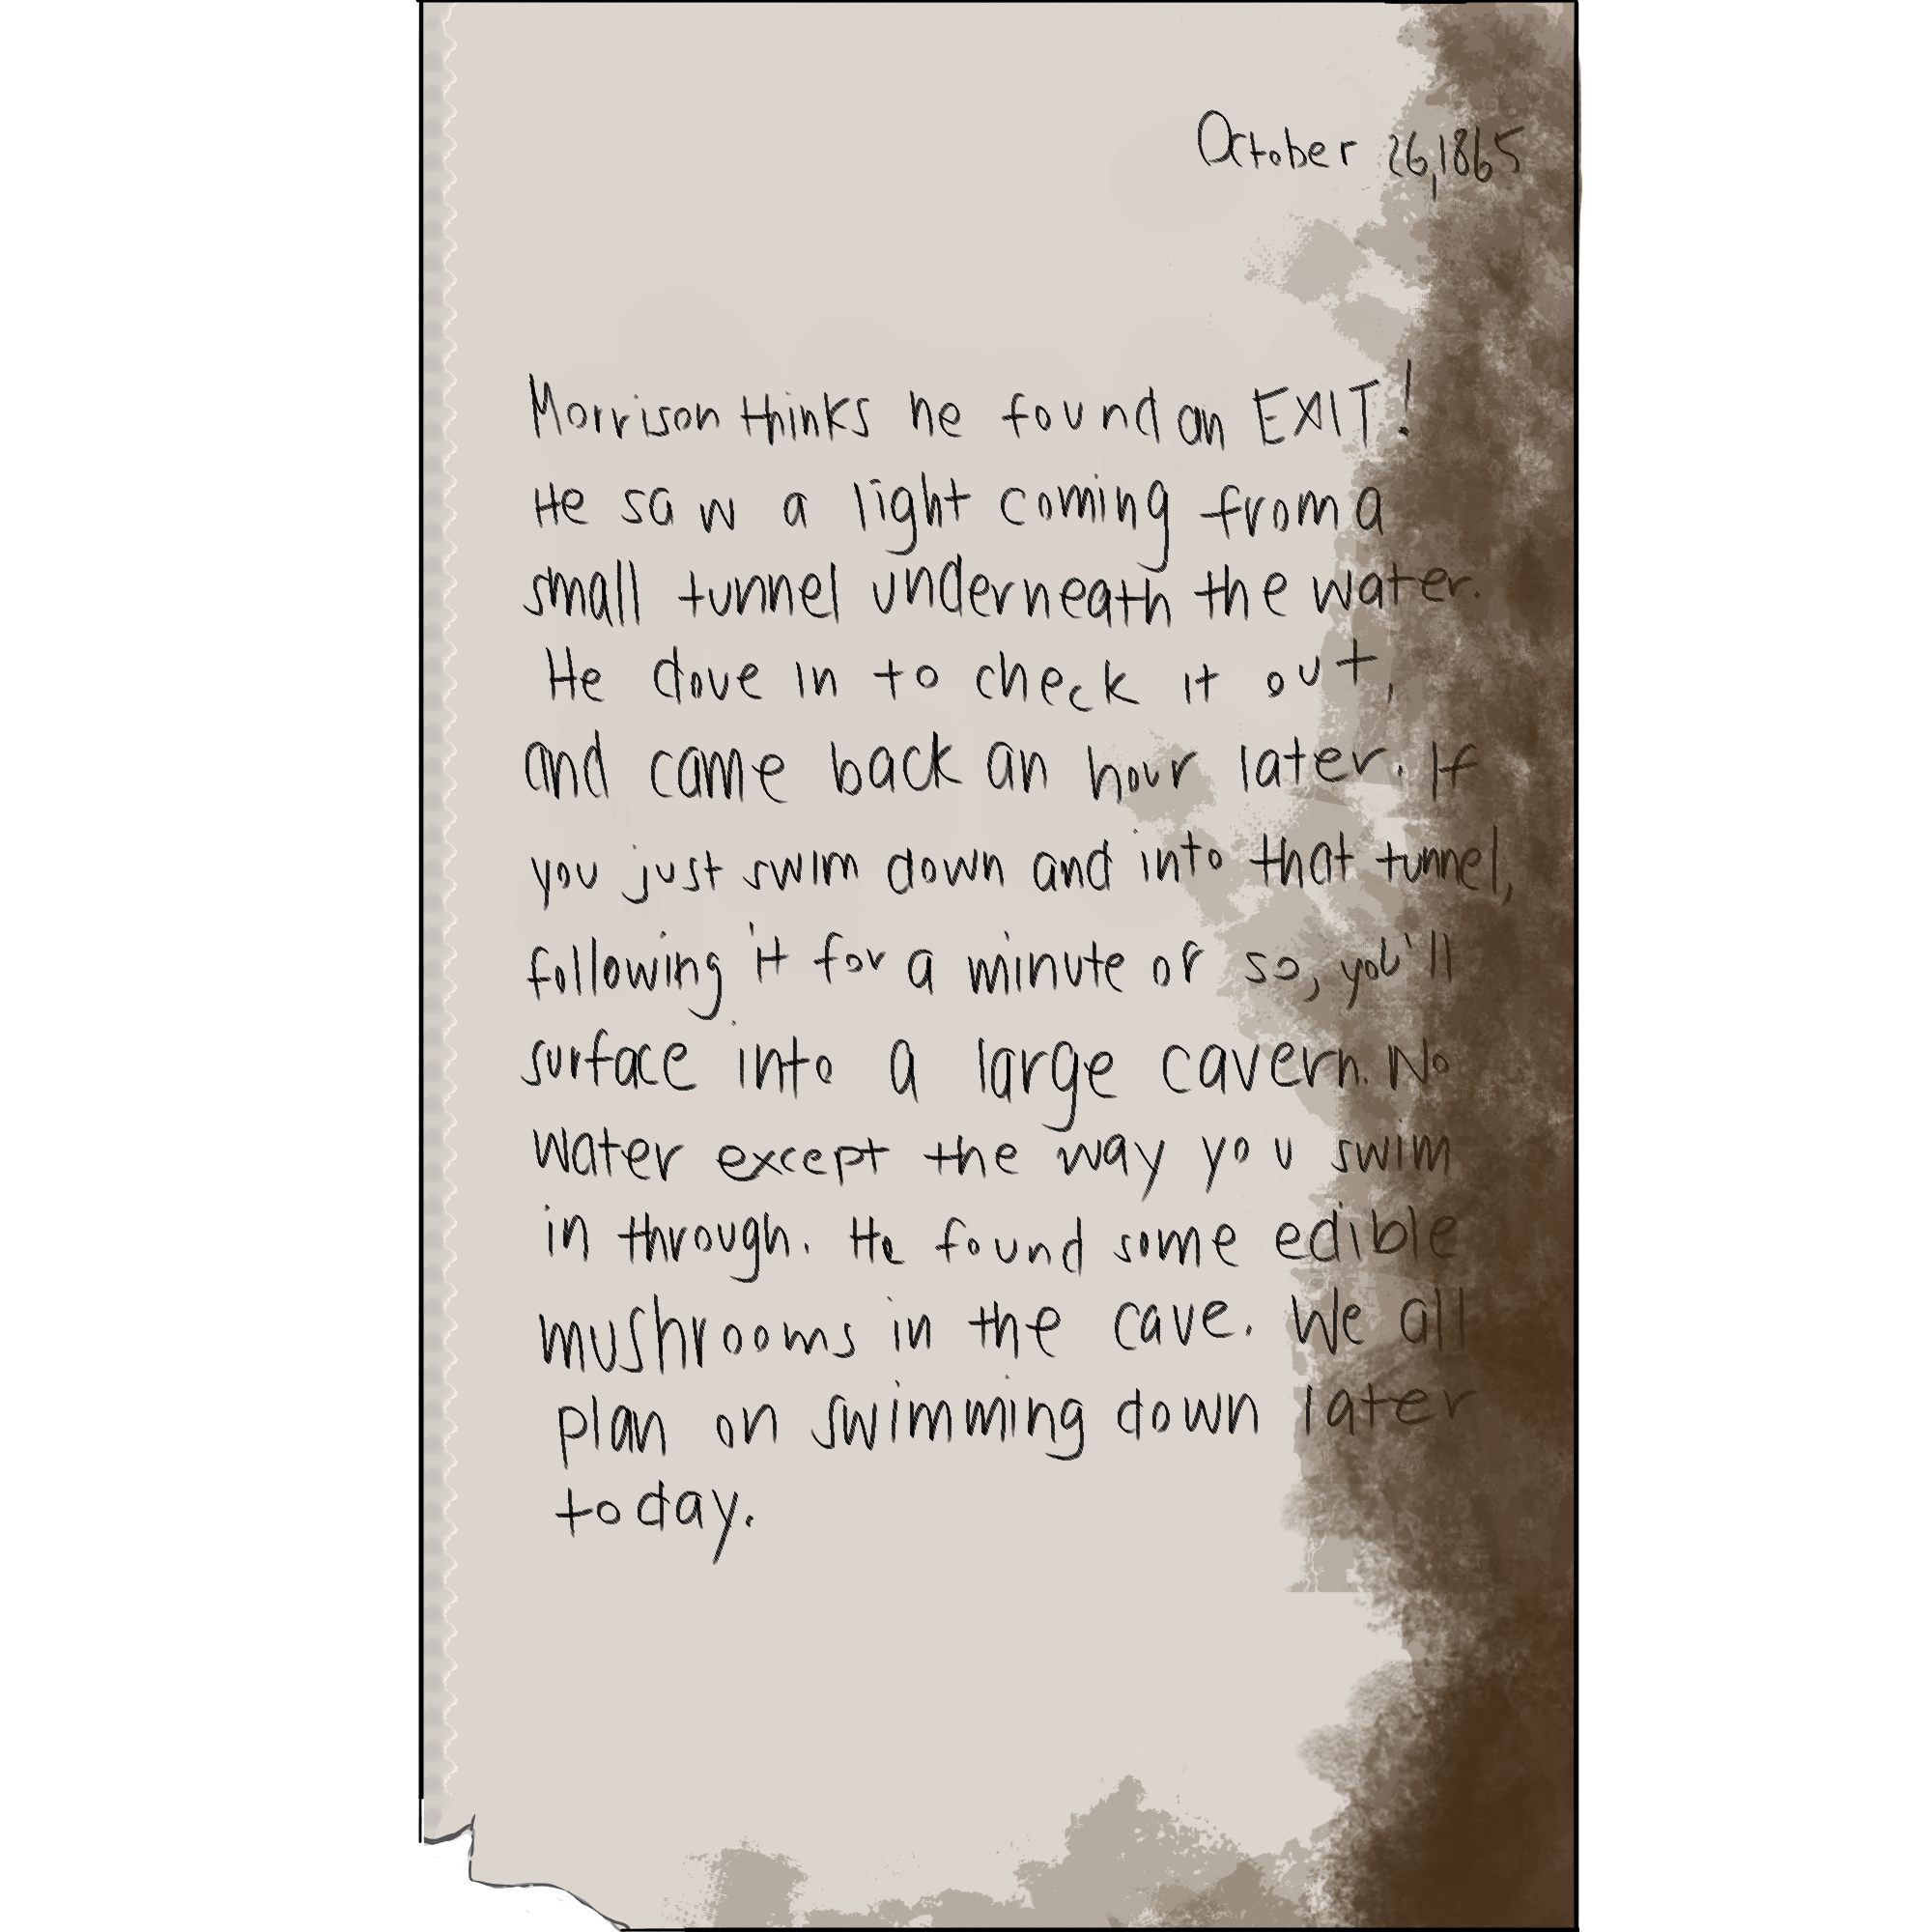 October 26,1865
Morrison thinks he found an EXIT!
He saw a light coming from a
small tunnel underneath the water.
He dove in to check it out,
and came back an hour later. If
you just swim down and into that tunnel,
following it for a minute or so, you'll
surface into a large cavern. No
water except the way you swim
in through. He found some edible
mushrooms in the cave. We all
plan on swimming down later
today.